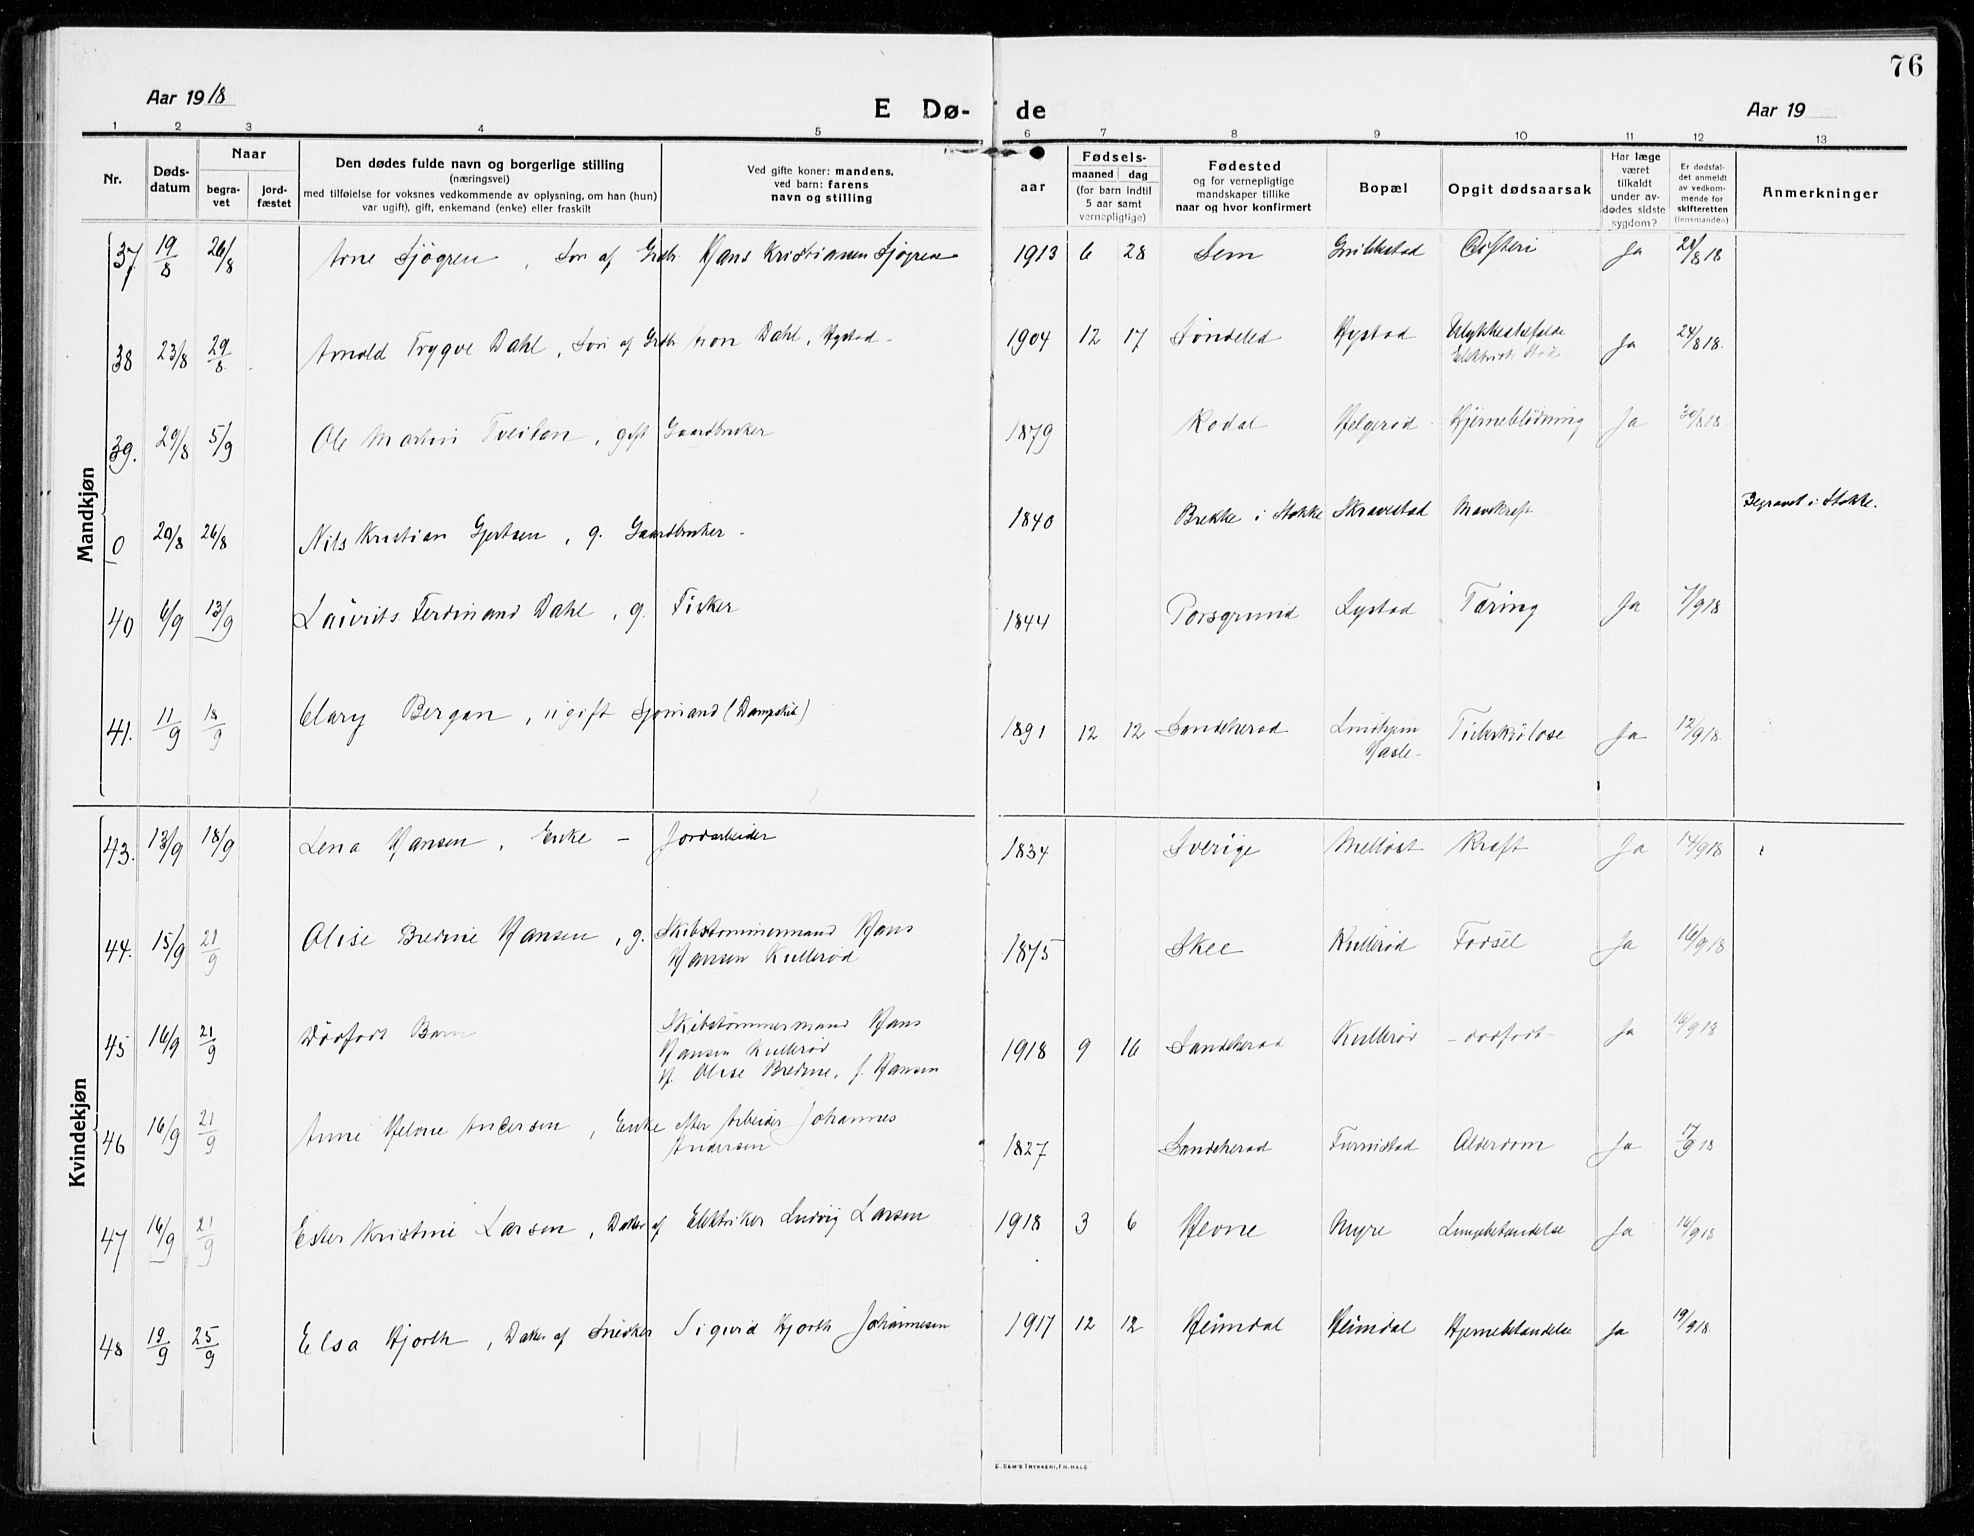 76
Aar 1918
E Dø-
de
Aar 19
1 2 3 4 5 6 7 8 9 10 11 12 13
Nr.
Døds-
datum
Naar
begra-
vet
jord-
fæstet
Den dødes fulde navn og borgerlige stilling
(næringsvei)
med tilføielse for voksnes vedkommende av oplysning, om han (hun)
var ugift), gift, enkemand (enke) eller fraskilt
Ved gifte koner: mandens,
ved barn: farens
navn og stilling
aar
Fødsels-
maaned dag
(for barn indtil
5 aar samt
vernepligtige)
Fødested
og for vernepligtige
mandskaper tillike
naar og hvor konfirmert
Bopæl
Opgit dødsaarsak
Har læge
været
tilkaldt
under av-
dødes sidste
sygdom?
Er dødsfal-
det anmeldt
av vedkom-
mende for
skifteretten
(lensmanden)
Anmerkninger
Mandkjøn
37 19/8 26/8 Arne Sjögren, Sön af Hans Kristiansen Sjögren 1913 6 28 Sem Difteri Ja 21/8 18
38 23/8 29/8 Arnold Trygve Dahl, Sön af Aron Dahl, Hystad 1904 12 17 Söndeled Hystad Ulykkestilfælde Ja 24/8 18.
Elektrisk Stöt
39. 29/8 5/9 Ole Martin Tveitan, gift Gaardbruker 1879 Rodal Helgeröd Hjerneblödning Ja 30/8 18
0 20/8 26/8 Nils Kristian Gjertsen, g. Gaardbruker 1840 Brekke i Stokke Skravestad Mavekræft Begravet i Stokke.
40 6/9 13/9 Laurits Ferdinand Dahl, g. Fisker 1844 Porsgrund Tæring Ja 7/9 18
41. 11/9 18/9 Clary Bergan, ugift Sjömand (Dampskib) 1891 12 12 Sandeherad Ja 12/9 18
Hasle
Kvindekjøn
43. 13/9 18/9 Lena Hansen, Enke – Jordarbeider 1834 Sverige Melløst Kræft Ja 14/9 18
44. 15/9 21/9 Olise Bredine Hansen, g. Skibstömmermand Hans 1875 Skee Kulleröd Födsel Ja 16/9 18
Hansen Kulleröd
45 16/9 21/9 Dödfödt Barn Skibstömmermand Hans 1918 9 16 Sandeherad Kulleröd – dödfödt – Ja 16/9 18
Hansen Kulleröd
H. Olise Bredine, f. Hansen
46 16/9 21/9 Anne Helene Andersen, Enke efter Arbeider Johannes 1827 Sandeherad Furustad Alderdom Ja 17/9 18
Andersen
47 16/9 21/9 Ester Kristine Larsen, Datter af Elektriker Ludvig Larsen 1918 3 6 Hevne Myre Lungebetændelse Ja 16/9 18
48 19/9 25/9 Elsa Hjorth, Datter af Snedker Sigurd Hjorth Johannesen 1917 12 12 Heimdal Heimdal Hjernebetændelse Ja 19/9 18.
E. SEM'S TRYKKERI, FR.HALD